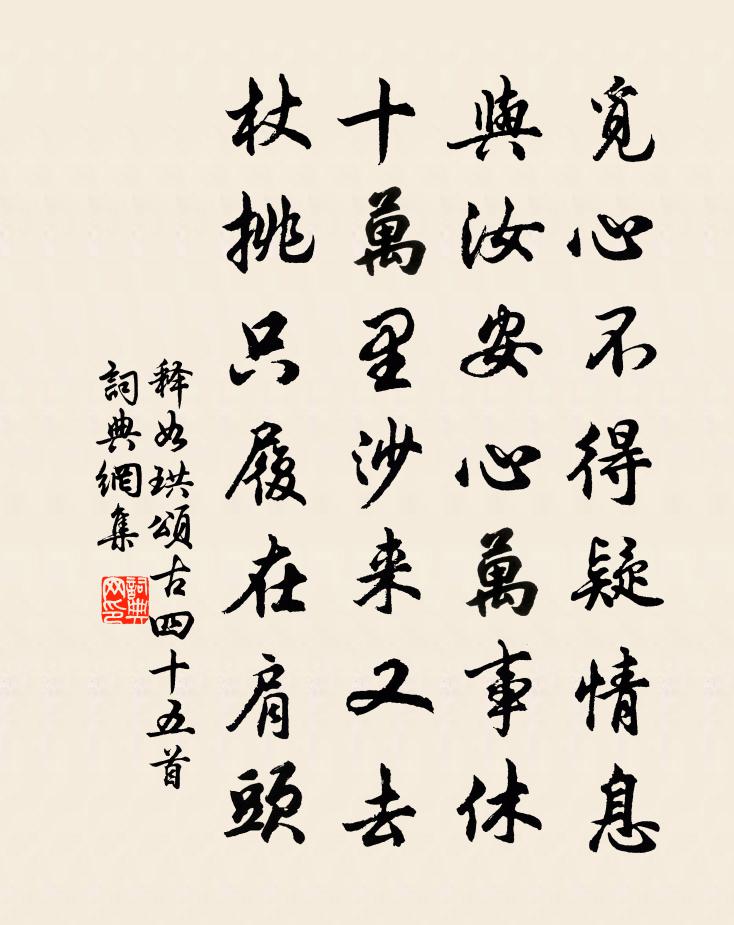 覓心不得疑情息
與汝安心萬事休
十萬里沙来又去
杖挑只履在肩頭
释如珙頌古四十五首
詞典網集
詞典網印